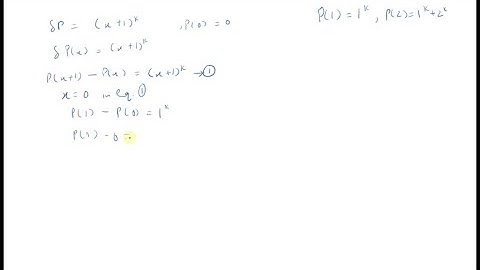 δP = (x+1)^k , P(0) = 0
P(1) = 1^k , P(2) = 1^k + 2^k
δ P(x) = (x+1)^k
P(x+1) - P(x) = (x+1)^k → ①
x = 0 in eq. ①
P(1) - P(0) = 1^k
P(1) - 0 =